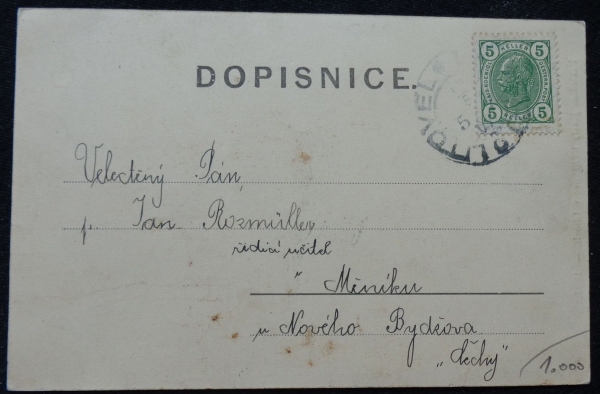 DOPISNICE.
5 HELLER 5
5 HELLER 5
LITOVEL
Velectěný Pán,
p. Jan Rozmüller
řídící učitel
v Měníku
u Nového Bydžova
"Čechy"
1.000